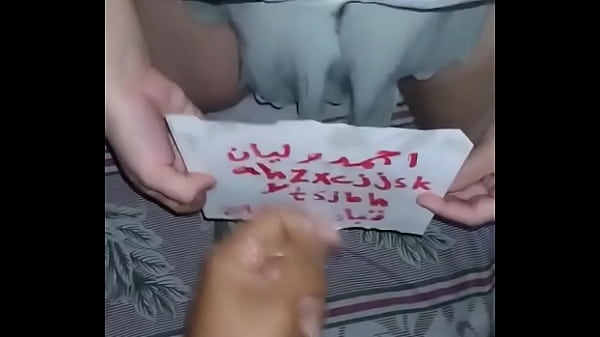 احمد و ليان
ahzxcjjsk
ytsjbh